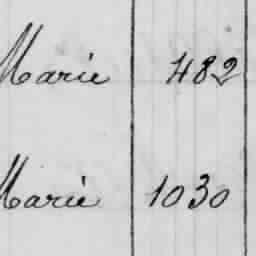 Marie 482
Marie 1030